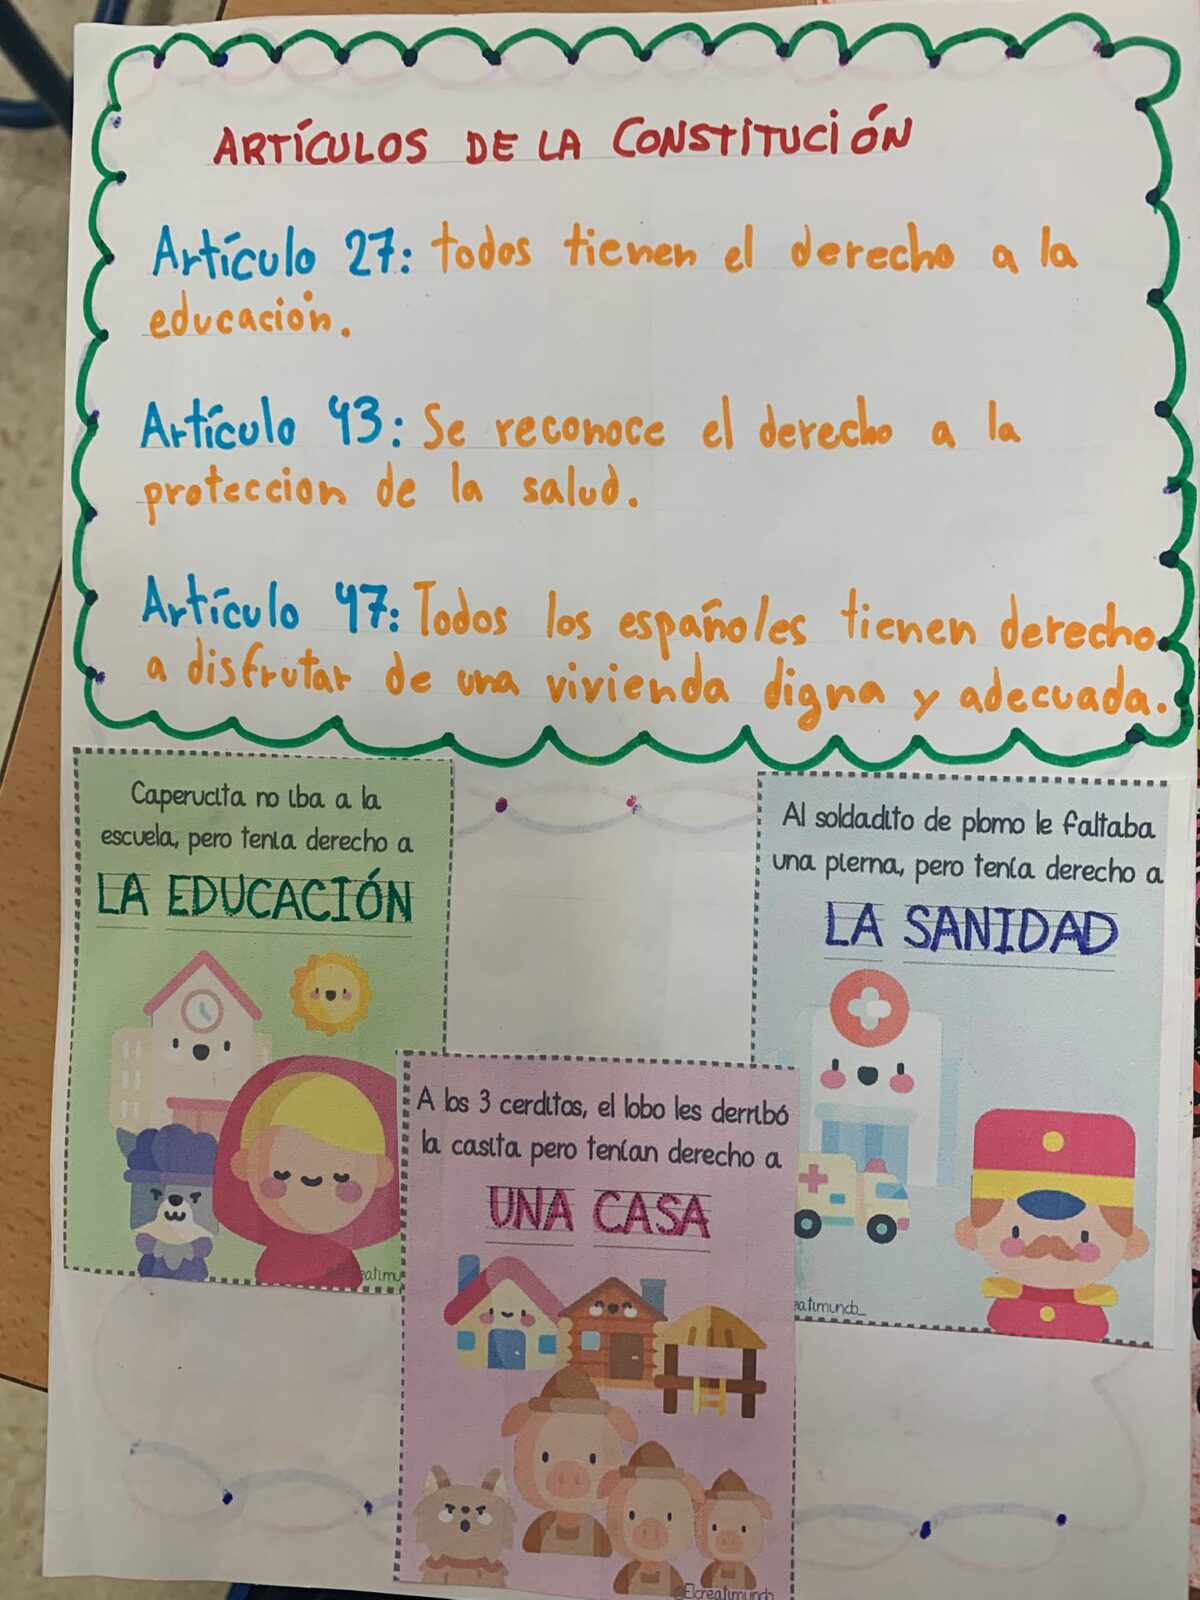 ARTÍCULOS DE LA CONSTITUCIÓN
Artículo 27: todos tienen el derecho a la
educación.
Artículo 43: Se reconoce el derecho a la
proteccion de la salud.
Artículo 47: Todos los españoles tienen derecho
a disfrutar de una vivienda digna y adecuada.
Caperucita no iba a la
escuela, pero tenía derecho a
LA EDUCACIÓN
Al soldadito de plomo le faltaba
una pierna, pero tenía derecho a
LA SANIDAD
A los 3 cerditos, el lobo les derribó
la casita pero tenían derecho a
UNA CASA
@Elcreatimundo_